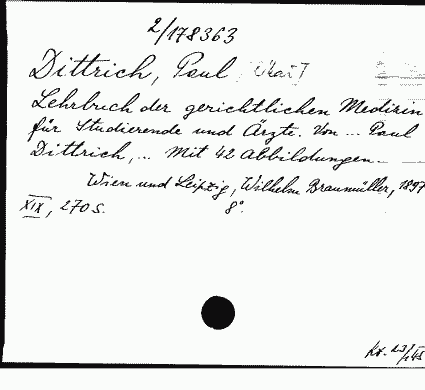 2/178363
Dittrich, Paul
Lehrbuch der gerichtlichen Medizin
für Studierende und Ärzte. Von ... Paul
Dittrich, ... Mit 42 Abbildungen.
Wien und Leipzig, Wilhelm Braumüller, 1897
XIX, 270 S. 8°.